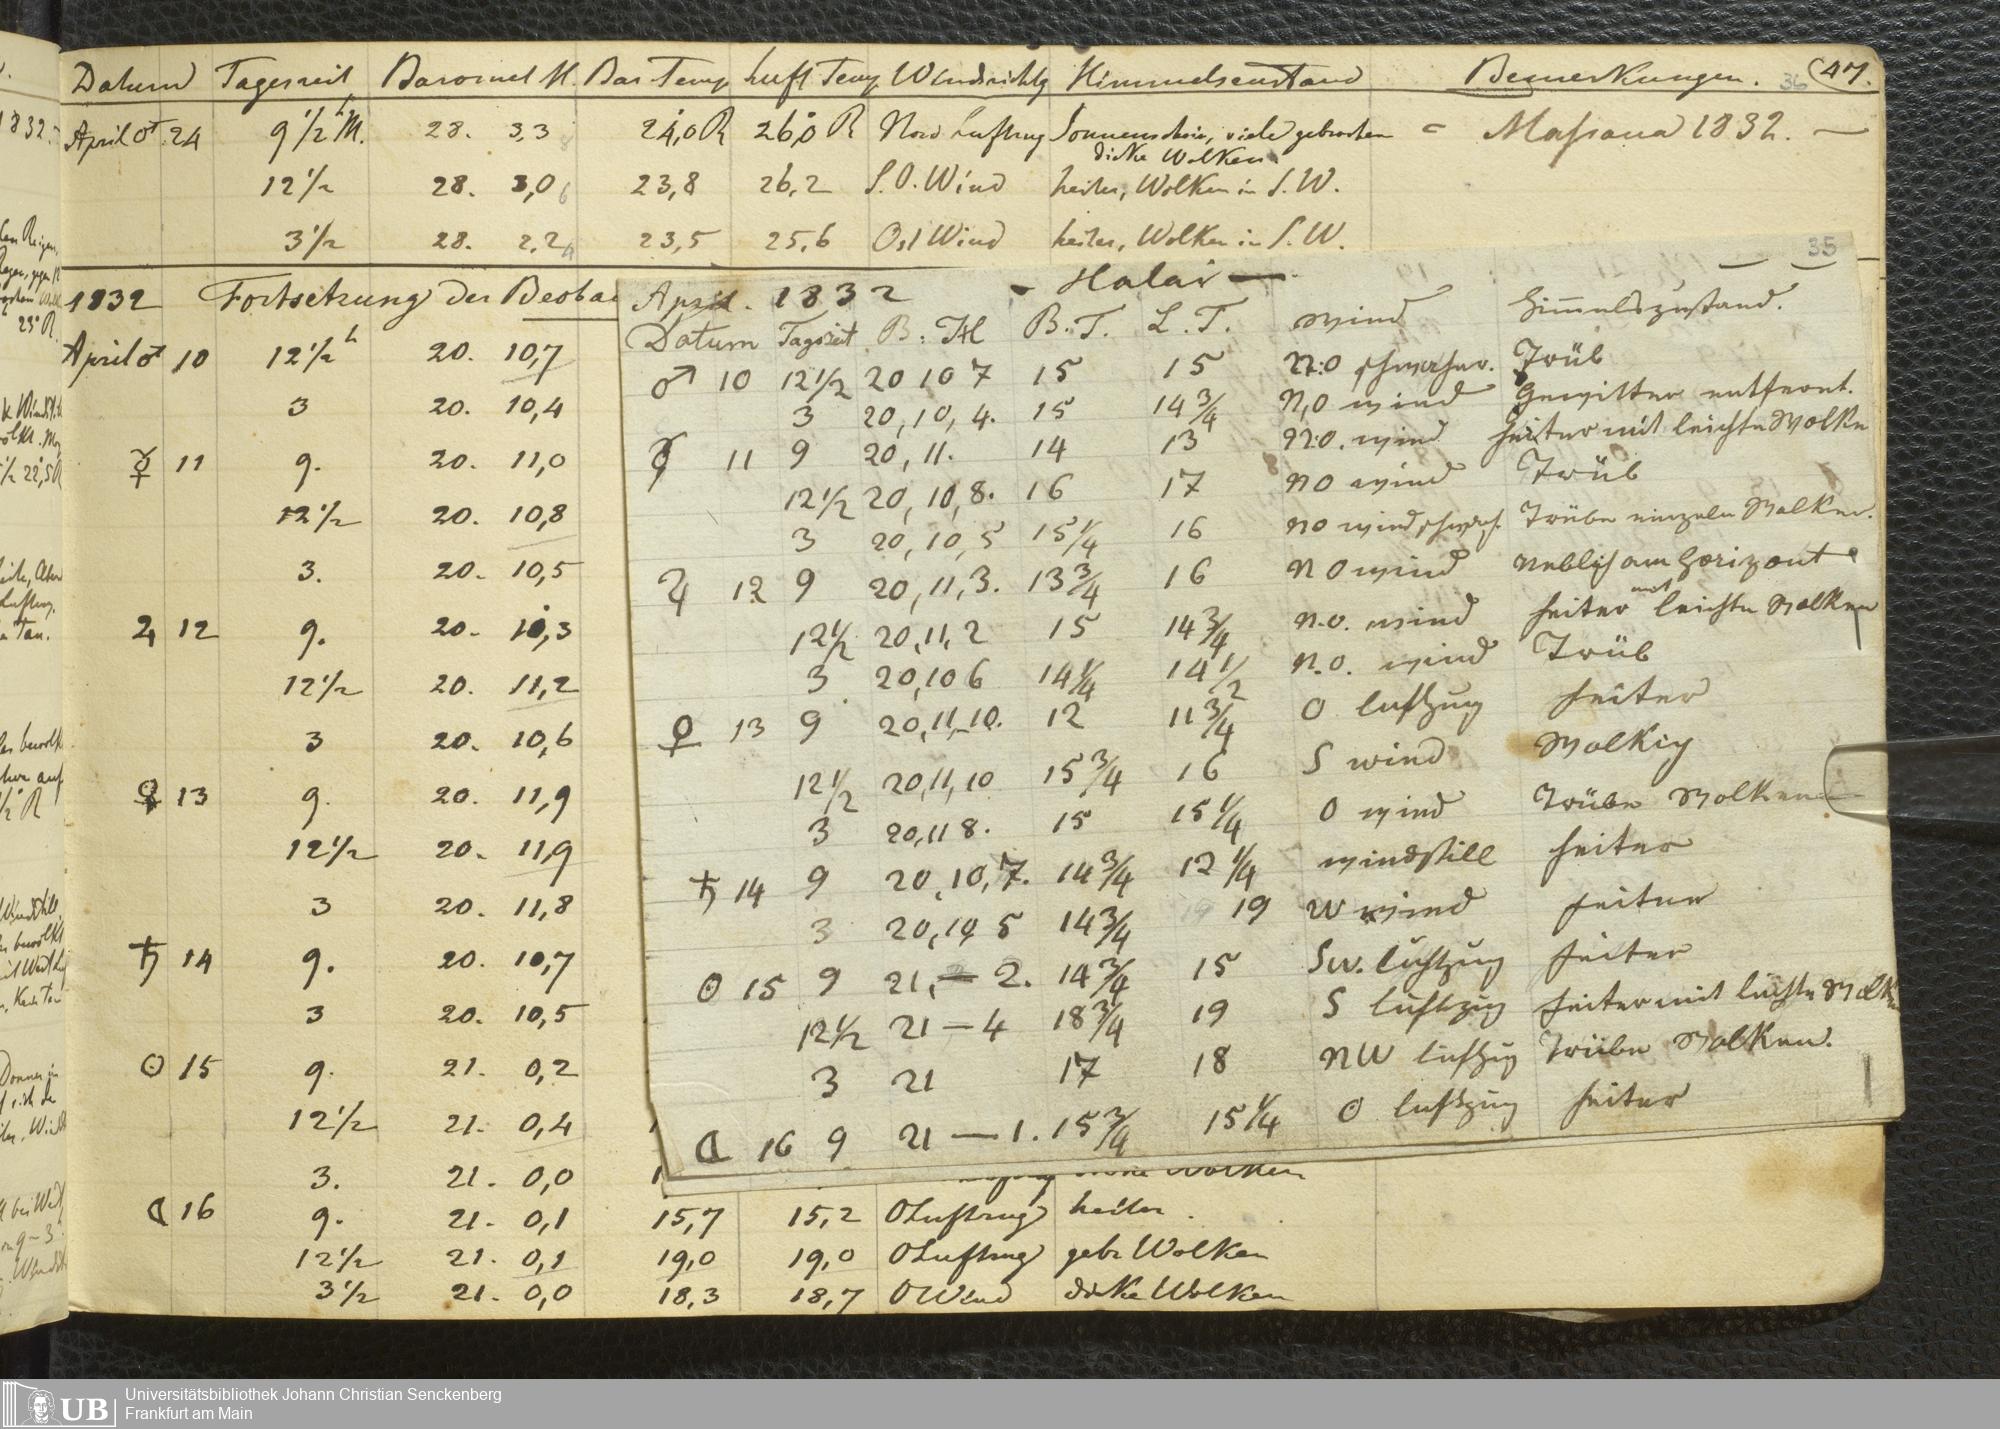 Datum Tageszeit Baromet H. Bar Temp Luft Temp Windrichtg Himmelszustand Bemerkungen. 36 47.
April ♂ 24 9 1/2 h M. 28. 3,3 24,0 R 26,0 R Nord Luftzug Sonnenschein, viele gebrochen = Massaua 1832. —
dicke Wolken
12 1/2 28. 3,0 23,8 26,2 S.O. Wind heiter, Wolken in S.W.
3 1/2 28. 2,2 23,5 25,6 Ost Wind heiter, Wolken in S.W.
1832 Fortsetzung der Beobac
April ♂ 10 12 1/2 h 20. 10,7
3 20. 10,4
☿ 11 9. 20. 11,0
12 1/2 20. 10,8
3. 20. 10,5
♃ 12 9. 20. 10,3
12 1/2 20. 11,2
3 20. 10,6
♀ 13 9. 20. 11,9
12 1/2 20. 11,9
3 20. 11,8
♄ 14 9. 20. 10,7
3 20. 10,5
☉ 15 9. 21. 0,2
12 1/2 21. 0,4
3. 21. 0,0 Wolken
☾ 16 9. 21. 0,1 15,7 15,2 O Luftzug heiter.
12 1/2 21. 0,1 19,0 19,0 O Luftzug gebr Wolken
3 1/2 21. 0,0 18,3 18,7 O Wind dicke Wolken
35
April. 1832 - Halai —
Datum Tagszeit B: H B.T. L.T. Wind Himmelszustand.
♂ 10 12 1/2 20 10 7 15 15 N:O schwacher. Trüb
3 20, 10, 4. 15 14 3/4 N,O wind Gewitter entfernt.
☿ 11 9 20, 11. 14 13 N:O. wind heiter mit leichte Wolke
12 1/2 20, 10, 8. 16 17 NO wind Trüb
3 20, 10, 5 15 1/4 16 NO wind schwach Trübe einzeln Wolken.
♃ 12 9 20, 11, 3. 13 3/4 16 NO wind Neblich am Horizont
12 1/2 20, 11, 2 15 14 3/4 N.O. wind heiter mit leichte Wolken
3 20, 10 6 14 1/4 14 1/2 N.O. wind Trüb
♀ 13 9 20, 11, 10. 12 11 3/4 O luftzug heiter
12 1/2 20, 11, 10 15 3/4 16 S wind Wolkig
3 20, 11 8. 15 15 1/4 O wind Trübe Wolken
♄ 14 9 20, 10, 7. 14 3/4 12 1/4 windstill heiter
3 20, 10, 5 14 3/4 19 W wind heiter
☉ 15 9 21, — 2. 14 3/4 15 SW. luftzug heiter
12 1/2 21 — 4 18 3/4 19 S luftzug heiter mit leichte Wolke
3 21 17 18 NW luftzug Trübe Wolken.
☾ 16 9 21 — 1. 15 3/4 15 1/4 O luftzug heiter
Universitätsbibliothek Johann Christian Senckenberg
UB Frankfurt am Main